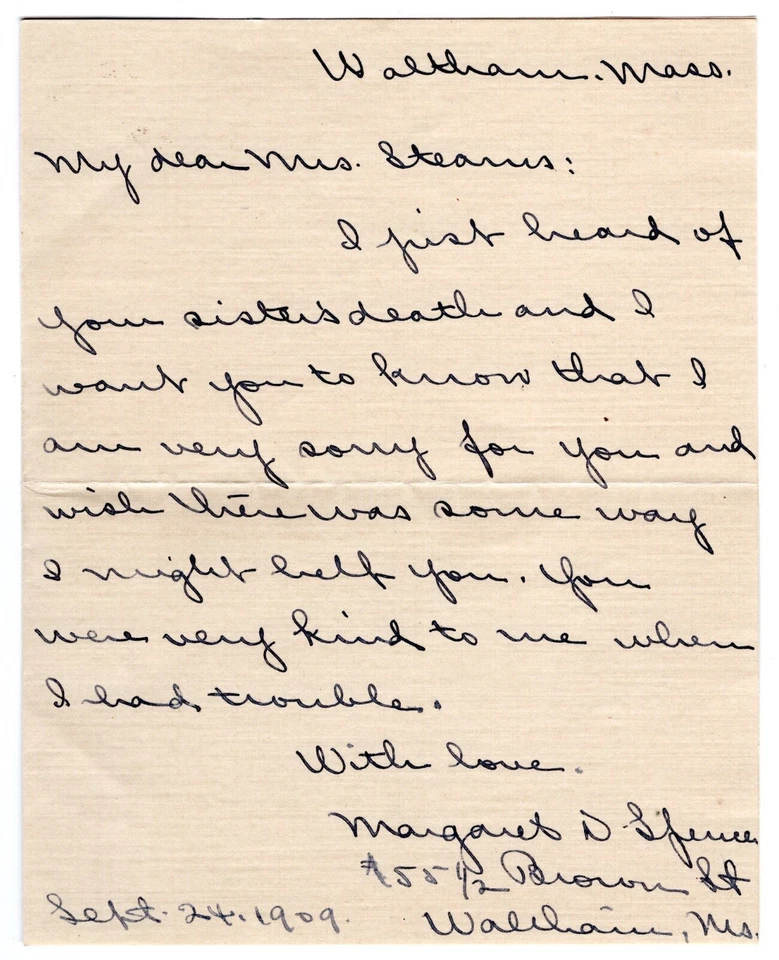 Waltham. Mass.
My dear Mrs. Stearns:
I just heard of
your sister's death and I
want you to know that I
am very sorry for you and
wish there was some way
I might help you. You
were very kind to me when
I had trouble.
With love.
Margaret D Spence
55 1/2 Brown St
Sept. 24. 1909.
Waltham, Ms.